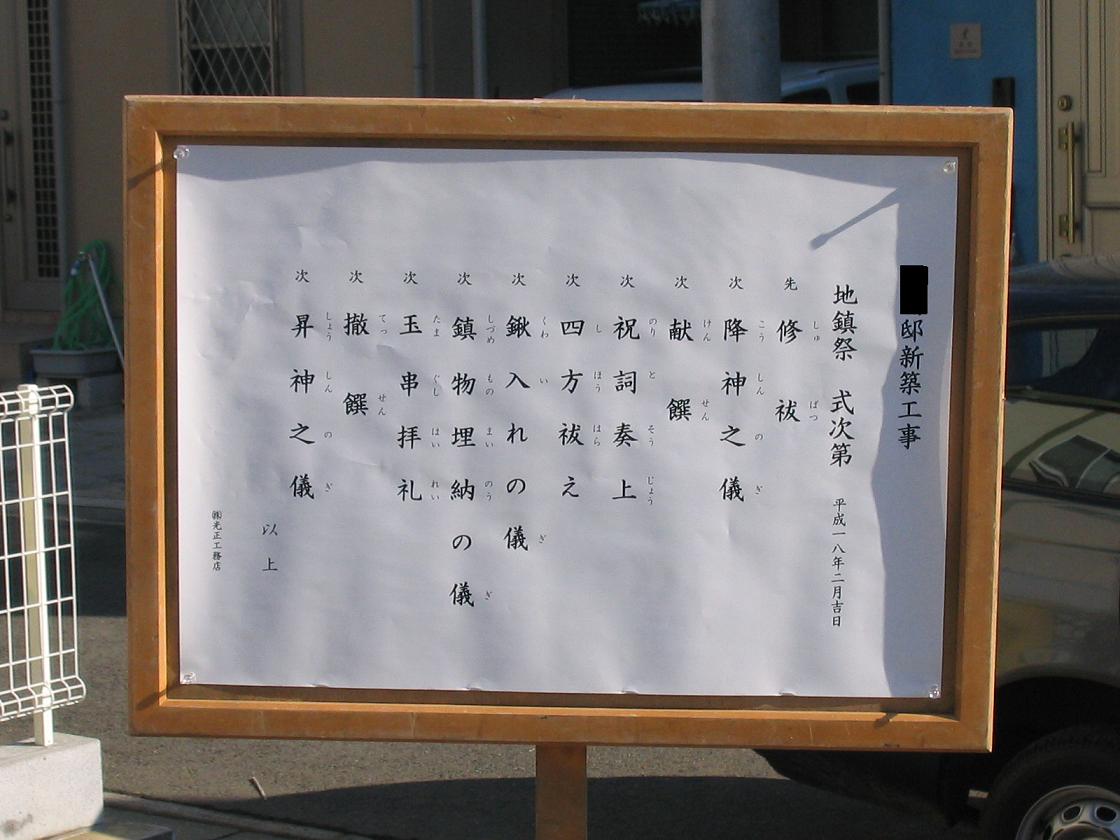 邸新築工事
地鎮祭 式次第 平成一八年二月吉日
先 修祓 しゅ ばつ
次 降神之儀 こう しん の ぎ
次 献饌 けん せん
次 祝詞奏上 のり と そう じょう
次 四方祓え し ほう はら
次 鍬入れの儀 くわ い ぎ
次 鎮物埋納の儀 しづめ もの まい のう ぎ
次 玉串拝礼 たま ぐし はい れい
次 撤饌 てっ せん
次 昇神之儀 しょう しん の ぎ
以上
㈱光正工務店